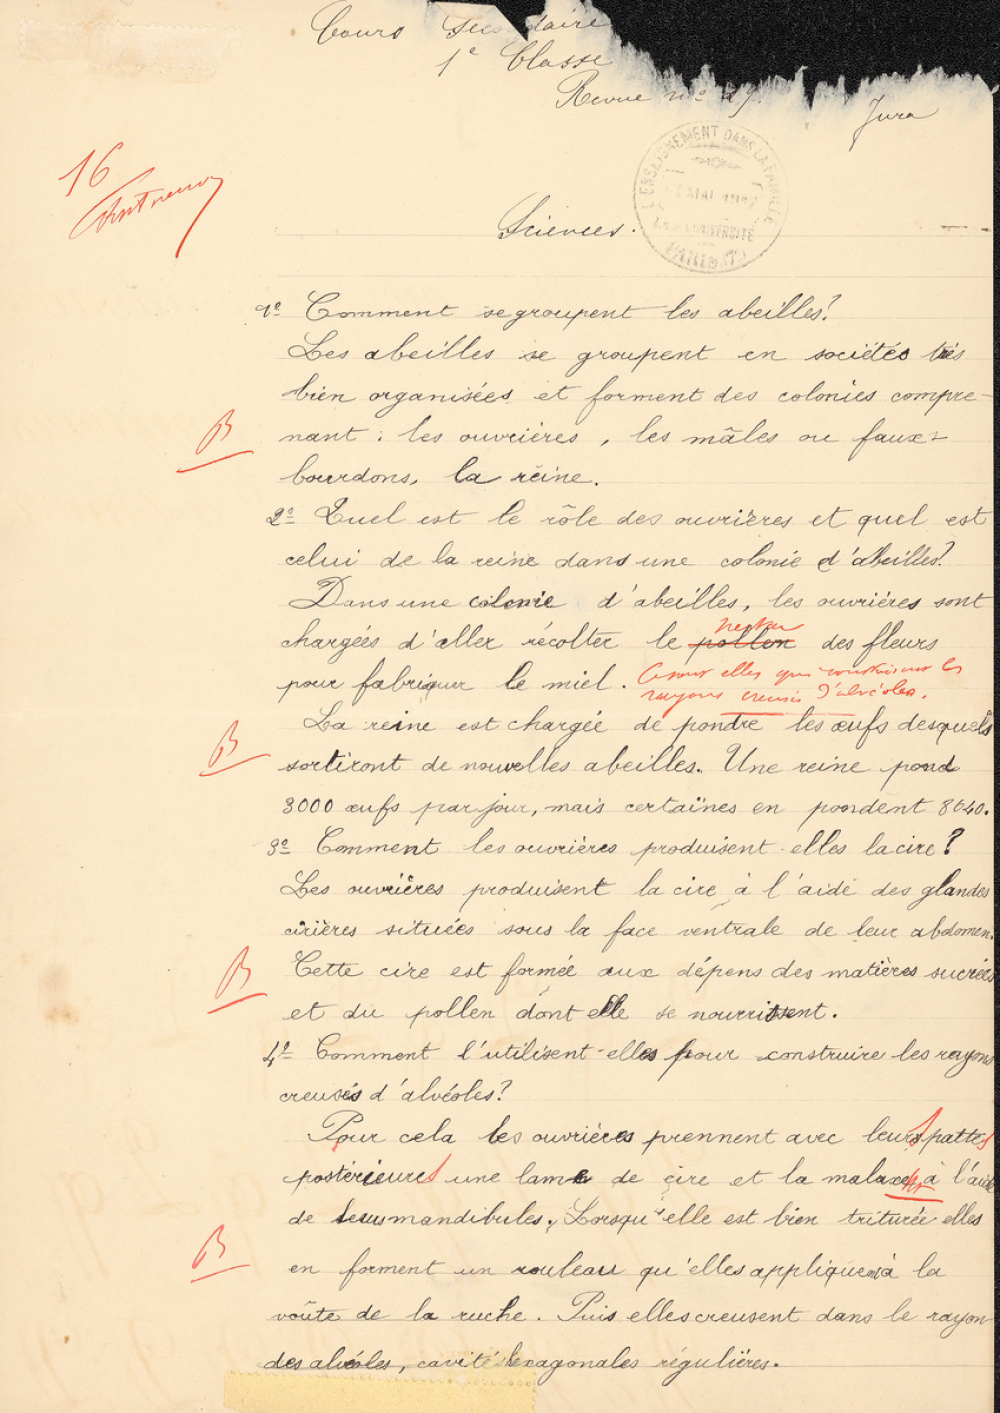 Cours Secondaire
1e Classe
Revue no 29.
Jura
16
L'ENSEIGNEMENT DANS LA FAMILLE
MAI
UNIVERSITÉ
Sciences.
1o Comment se groupent les abeilles?
Les abeilles se groupent en sociétés très
bien organisées et forment des colonies compre-
B nant : les ouvrières, les mâles ou faux-
bourdons, la reine.
2o Quel est le rôle des ouvrières et quel est
celui de la reine dans une colonie d'abeilles?
Dans une colonie d'abeilles, les ouvrières sont
nectar
chargées d'aller récolter le pollen des fleurs
pour fabriquer le miel. Ce sont elles qui construisent les
rayons creusés d'alvéoles.
La reine est chargée de pondre les œufs desquels
B sortiront de nouvelles abeilles. Une reine pond
3000 œufs par jour, mais certaines en pondent 8640.
3o Comment les ouvrières produisent-elles la cire?
Les ouvrières produisent la cire à l'aide des glandes
cirières situées sous la face ventrale de leur abdomen.
B Cette cire est formée aux dépens des matières sucrées
et du pollen dont elle se nourrissent.
4o Comment l'utilisent-elles pour construire les rayons
creusés d'alvéoles?
Pour cela les ouvrières prennent avec leurs pattes
postérieures une lame de cire et la malaxent à l'aide
de leurs mandibules. Lorsqu'elle est bien triturée elles
B en forment un rouleau qu'elles appliquent à la
voûte de la ruche. Puis elles creusent dans le rayon
des alvéoles, cavités hexagonales régulières.